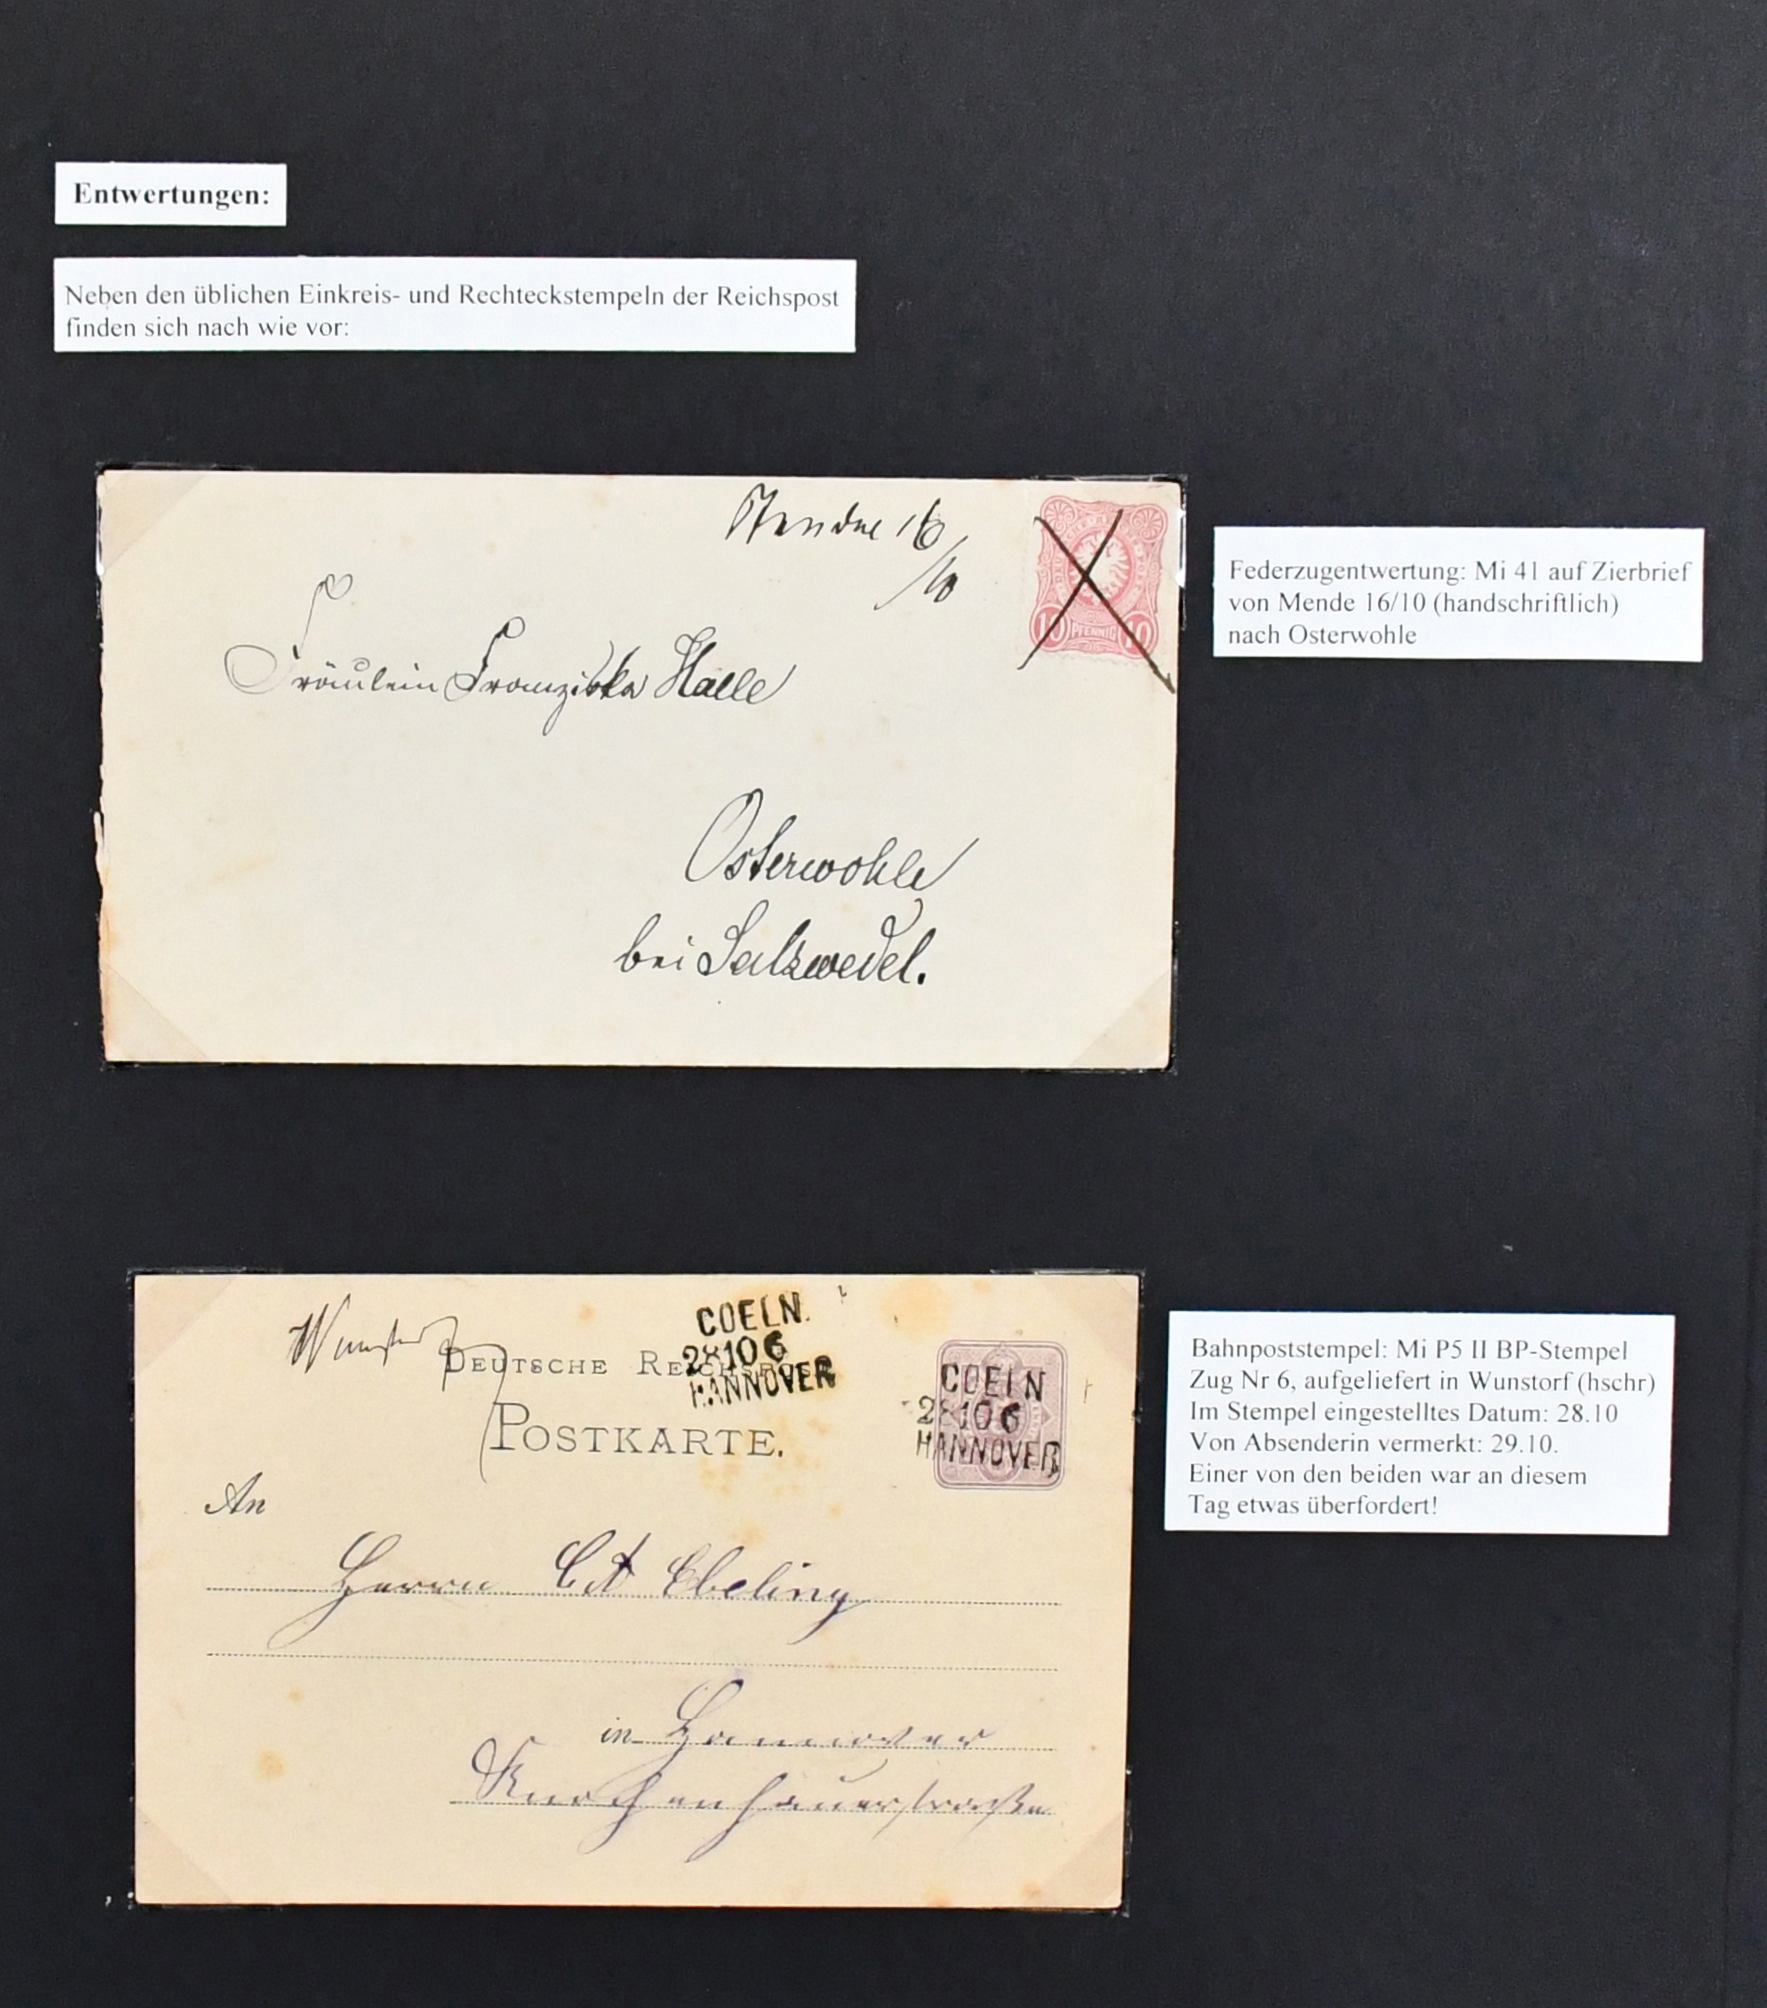 Entwertungen:
Neben den üblichen Einkreis- und Rechteckstempeln der Reichspost
finden sich nach wie vor:
16
/10
10 PFENNIG 10
Fräulein Franziska Halle
Osterwohle
bei Salzwedel.
Federzugentwertung: Mi 41 auf Zierbrief
von Mende 16/10 (handschriftlich)
nach Osterwohle
COELN.
28 10 6
HANNOVER
DEUTSCHE REICHSPOST
POSTKARTE.
COELN
28 10 6
HANNOVER
An
Herrn C A Ebeling
in Hannover
Knochenhauerstraße
Bahnpoststempel: Mi P5 II BP-Stempel
Zug Nr 6, aufgeliefert in Wunstorf (hschr)
Im Stempel eingestelltes Datum: 28.10
Von Absenderin vermerkt: 29.10.
Einer von den beiden war an diesem
Tag etwas überfordert!